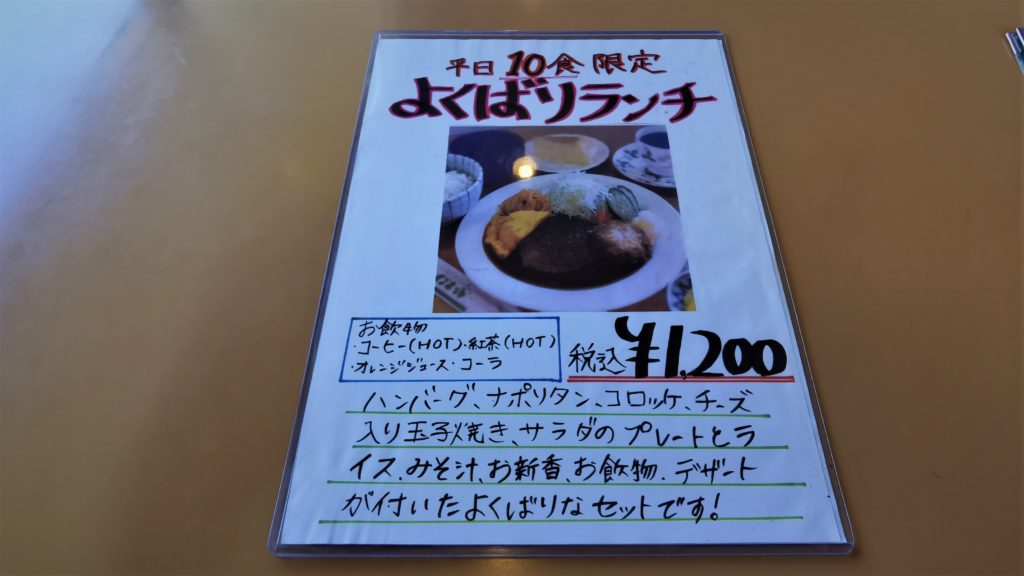 平日 10食 限定
よくばりランチ
お飲物
・コーヒー(HOT)・紅茶(HOT)
・オレンジジュース・コーラ
税込 ¥1,200
ハンバーグ、ナポリタン、コロッケ、チーズ
入り玉子焼き、サラダのプレートとラ
イス、みそ汁、お新香、お飲物、デザート
が付いたよくばりなセットです!